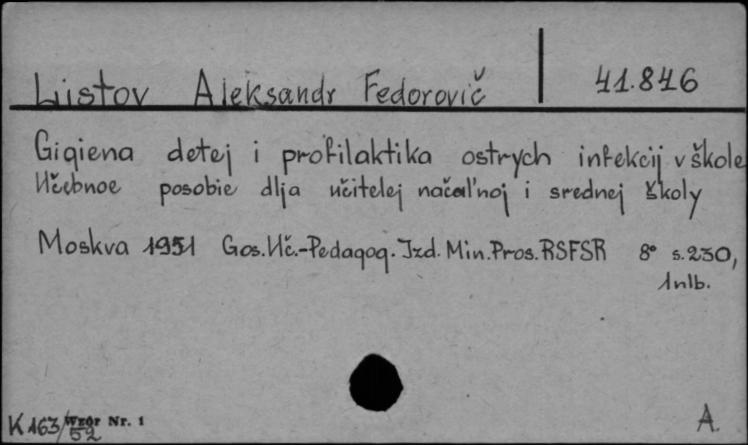 Listov Aleksandr Fedorovič 41.846
Gigiena detej i profilaktika ostrych infekcij v škole
Učebnoe posobie dlja učitelej načal'noj i srednej školy
Moskva 1951 Gos.Uč.-Pedagog. Izd. Min. Pros. RSFSR 8° s.230,
1nlb.
K 163/52 Wzór Nr. 1
A.